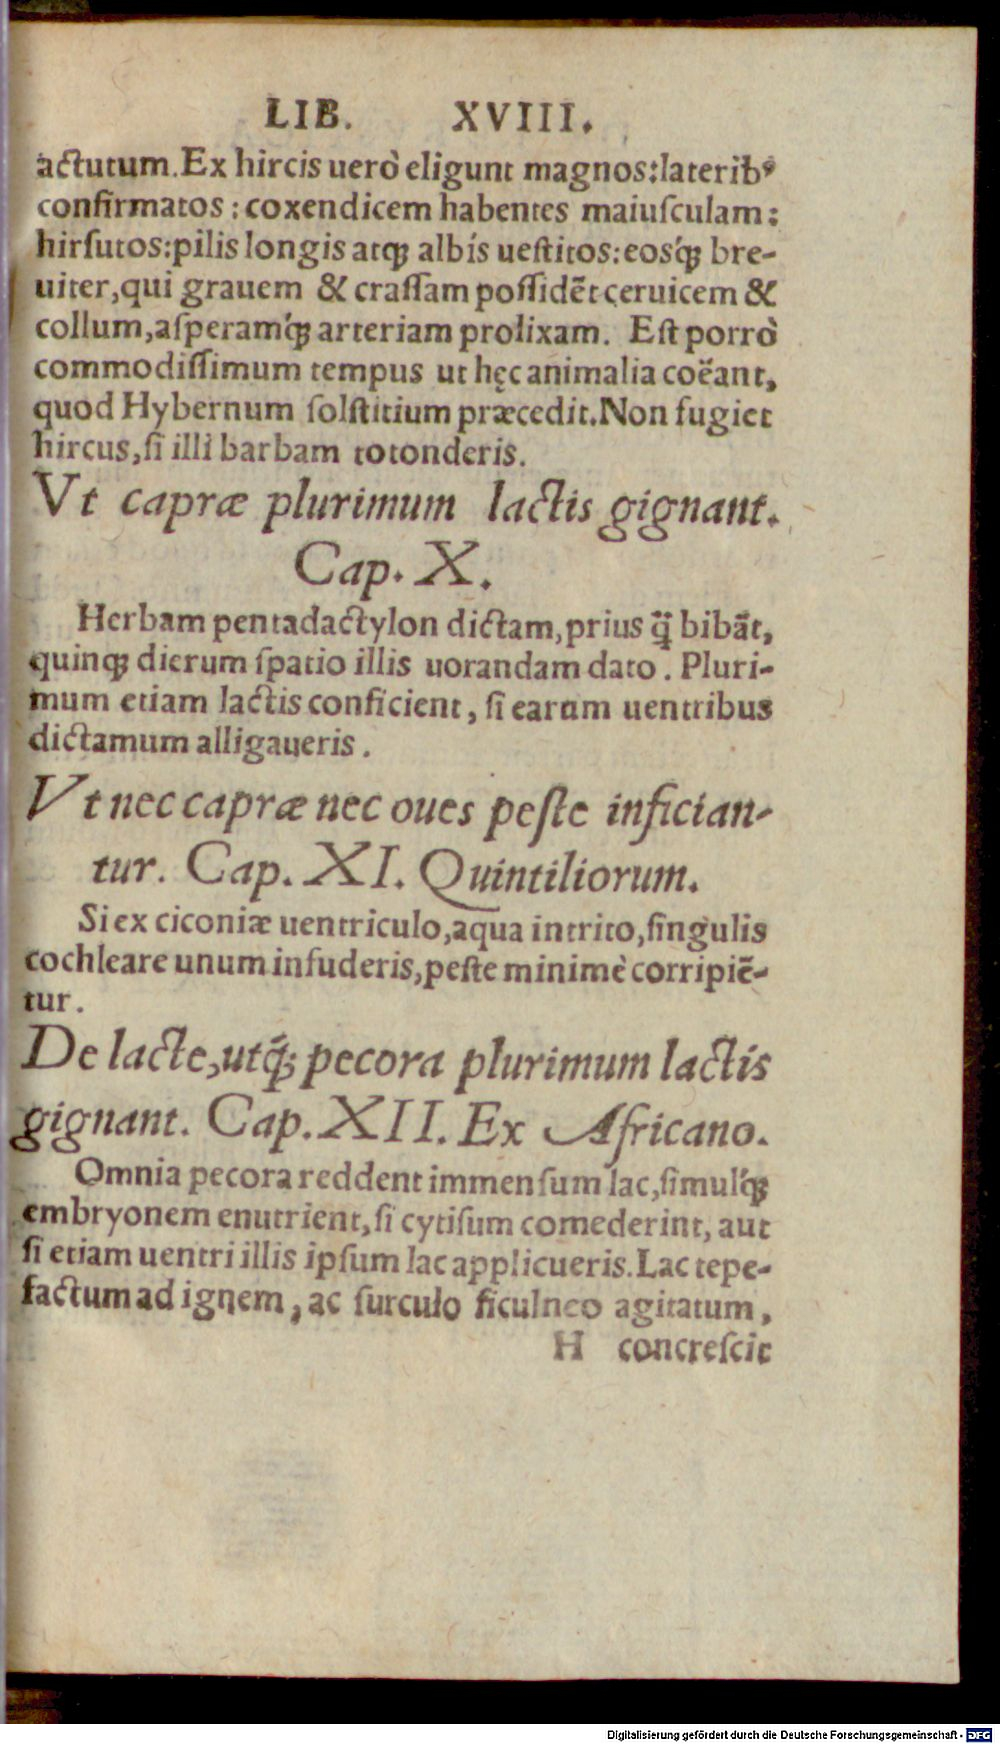 LIB. XVIII.
actutum. Ex hircis uerò eligunt magnos: laterib⁹
confirmatos: coxendicem habentes maiusculam:
hirsutos: pilis longis atqꝫ albis uestitos: eosq́ꝫ bre-
uiter, qui grauem & crassam possidēt ceruicem &
collum, asperamq́ꝫ arteriam prolixam. Est porrò
commodissimum tempus ut hęc animalia coëant,
quod Hybernum solstitium præcedit. Non fugiet
hircus, si illi barbam totonderis.
Vt capræ plurimum lactis gignant.
Cap. X.
Herbam pentadactylon dictam, prius q̃ bibãt,
quinqꝫ dierum spatio illis uorandam dato. Pluri-
mum etiam lactis conficient, si earum uentribus
dictamum alligaueris.
Vt nec capræ nec oues peste infician-
tur. Cap. XI. Quintiliorum.
Si ex ciconiæ uentriculo, aqua intrito, singulis
cochleare unum infuderis, peste minimè corripiẽ-
tur.
De lacte, utq́ꝫ pecora plurimum lactis
gignant. Cap. XII. Ex Africano.
Omnia pecora reddent immensum lac, simulq́ꝫ
embryonem enutrient, si cytisum comederint, aut
si etiam uentri illis ipsum lac applicueris. Lac tepe-
factum ad ignem, ac surculo ficulneo agitatum,
H concrescit
Digitalisierung gefördert durch die Deutsche Forschungsgemeinschaft - DFG